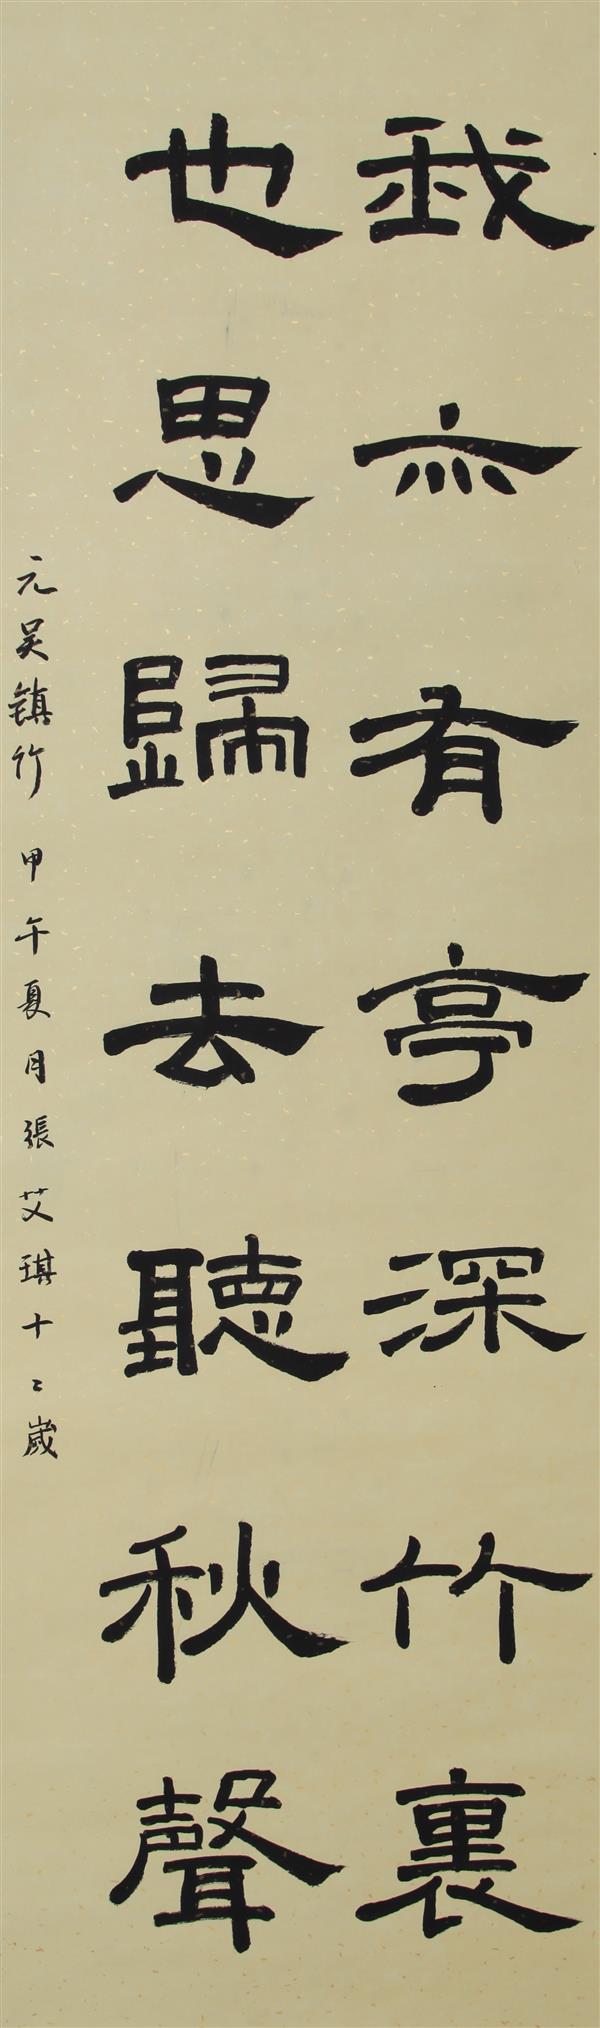 我亦有亭深竹裏
也思歸去聽秋聲
元吴镇竹 甲午夏月張艾琪十二歲